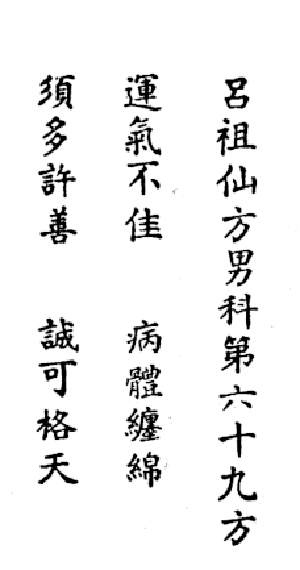 呂祖仙方男科第六十九方
運氣不佳　病體纏綿
須多許善　誠可格天